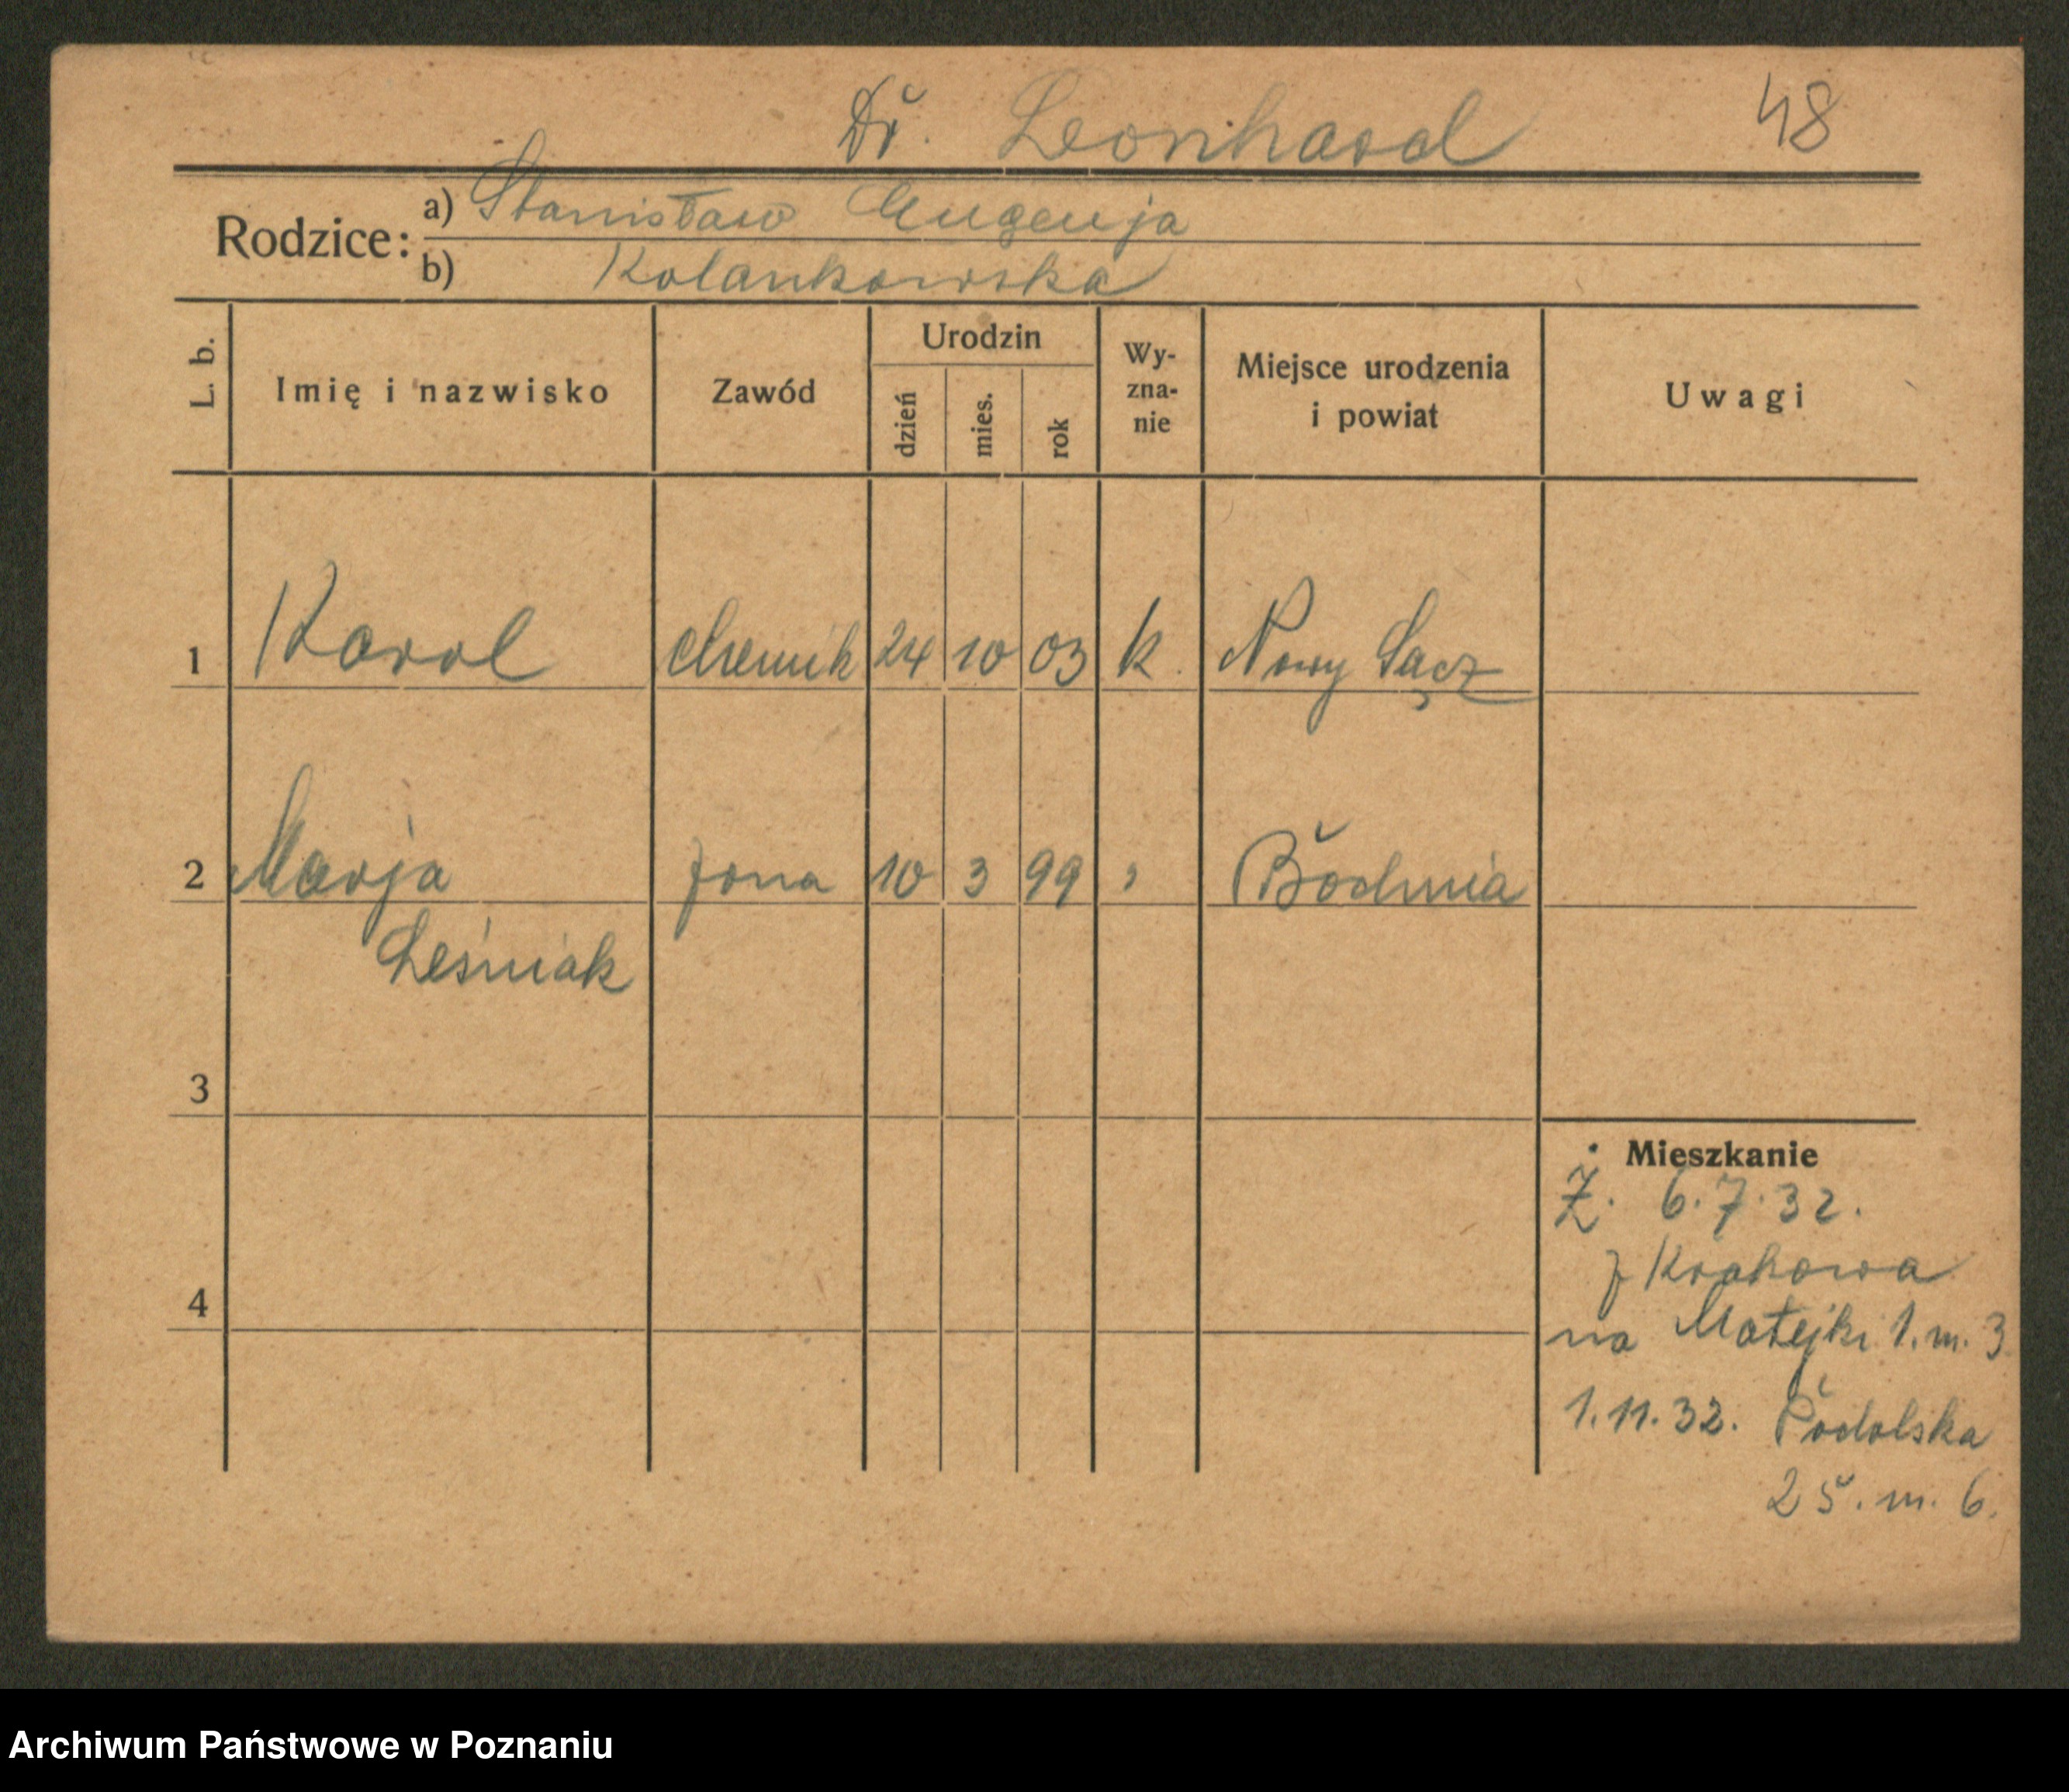 Dr. Leonhard 48
Rodzice: a) Stanisław Eugenja
b) Kolankowska
L. b. Imię i nazwisko Zawód Urodzin dzień mies. rok Wy-zna-nie Miejsce urodzenia i powiat Uwagi
1 Karol chemik 24 10 03 k. Nowy Sącz
2 Marja żona 10 3 99 " Bochnia
Leśniak
3
Mieszkanie
Ż. 6.7.32.
z Krakowa
4
na Matejki 1. m. 3
1.11.32. Podolska
25. m. 6.
Archiwum Państwowe w Poznaniu